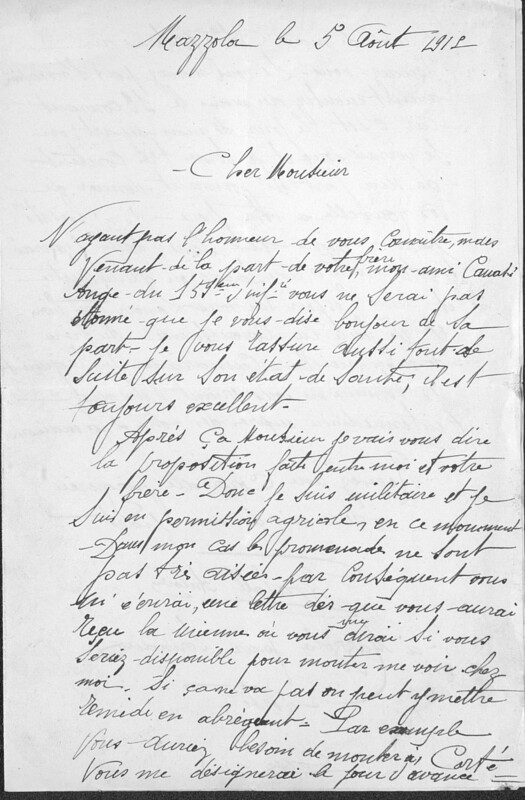 Mazzola le 5 Août 1918
- Cher Monsieur
N'ayant pas l'honneur de vous connaitre, mais
Venant-di là part-de votre frère mon-ami
Ange-du 15 vous ne serai pas
étonné-que je vous-dise bonjour de sa
part- Je vous l'assure aussi tout-de
suite sur son état-de santé, il est
toujours excellent-
Après ça Monsieur je vais vous dire
la proposition faite entre moi et votre
frère- Donc je suis militaire et je
suis en permission agricole, en ce moument
- Dans mon cas les promenades ne sont
pas très aisées-par conséquent vous
m'écrirai, une lettre dès-que vous-aurai
reçu la mienne où vous my dirai si vous
seriez-disponible pour monter me voir chez
moi. Si ça me va pas on peut y mettre
remède en abrégeant- Par exemple
Vous-auriez besoin de monter à Corté
Vous me désignerai le jour d'avance